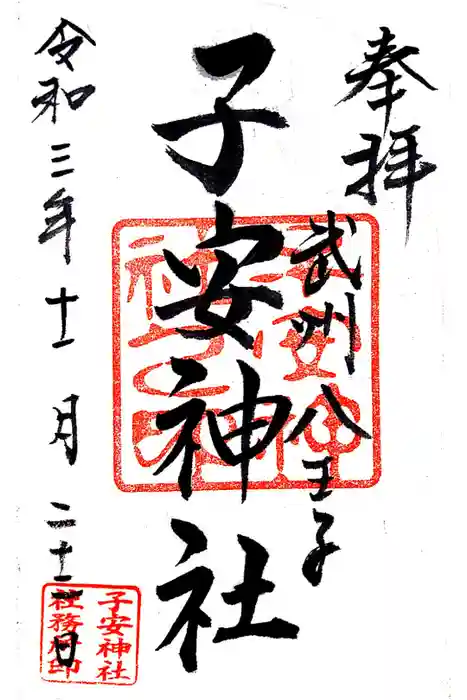 奉拝
武州八王子
子安神社
令和三年十一月二十二日
子安神社
社務所印